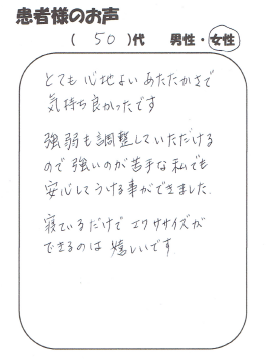 患者様のお声
( 50 )代 男性・女性
とても心地よいあたたかさで
気持ち良かったです
強弱も調整していただける
ので強いのが苦手な私でも
安心してうける事ができました.
寝ているだけでエクササイズが
できるのは嬉しいです